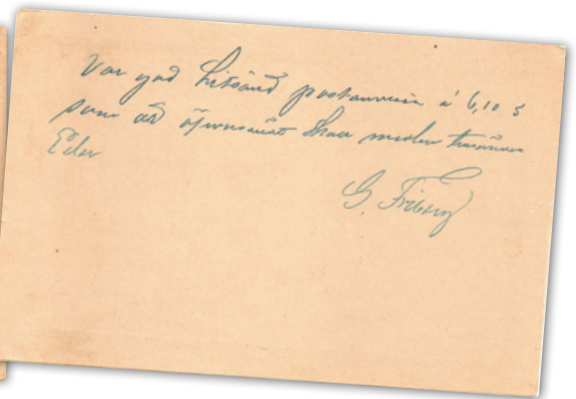 Var god hitsänd postanvisn à 6,10 s
som då öfversändt skall meden tillsändes
Eder
G. Friberg